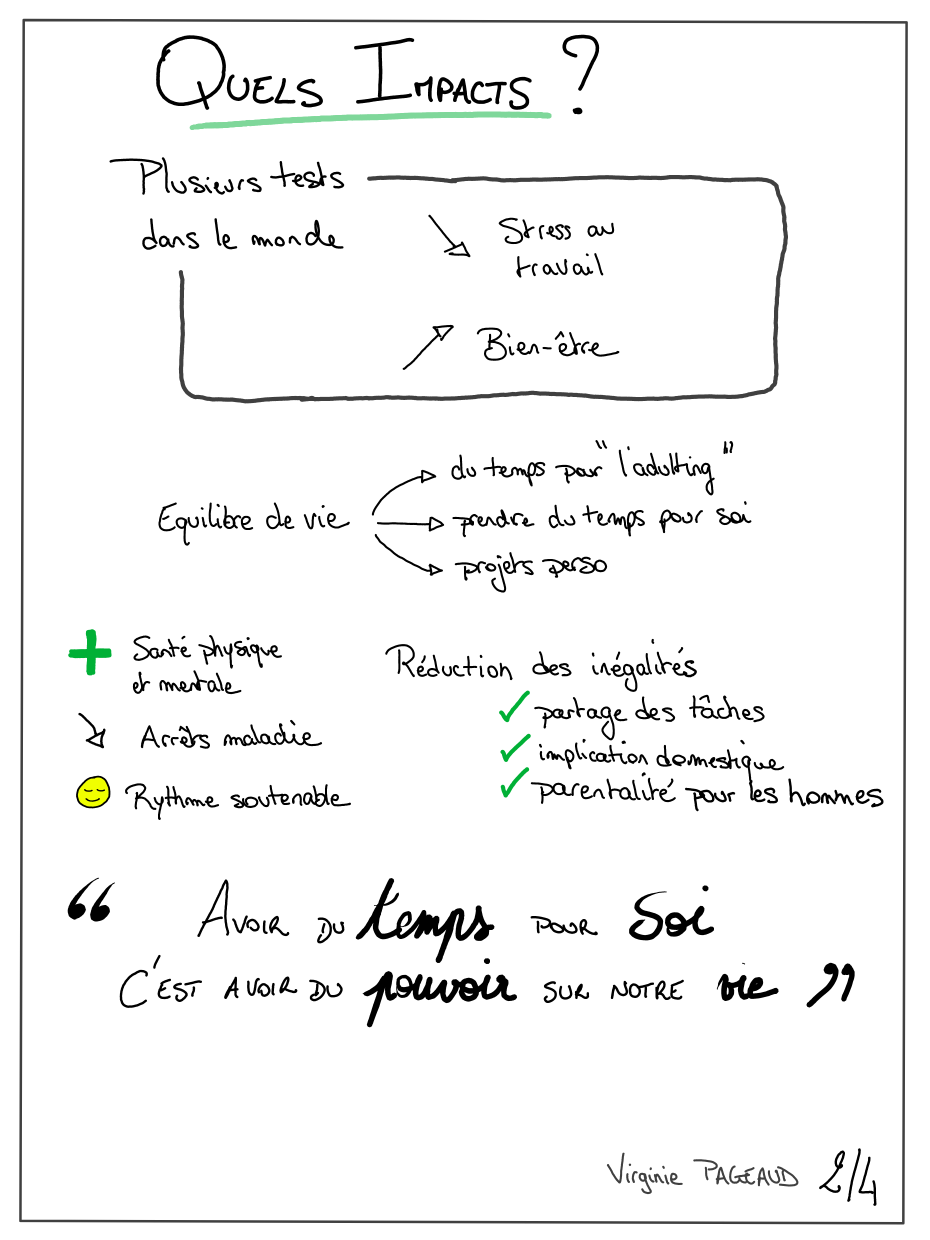 QUELS IMPACTS ?
Plusieurs tests
dans le monde
Stress au
travail
Bien-être
Equilibre de vie
du temps pour "l'adulting"
prendre du temps pour soi
projets perso
Santé physique
et mentale
Arrêts maladie
Rythme soutenable
Réduction des inégalités
partage des tâches
implication domestique
parentalité pour les hommes
“ AVOIR DU temps POUR Soi
C'EST AVOIR DU pouvoir SUR NOTRE vie ”
Virginie PAGEAUD 2/4